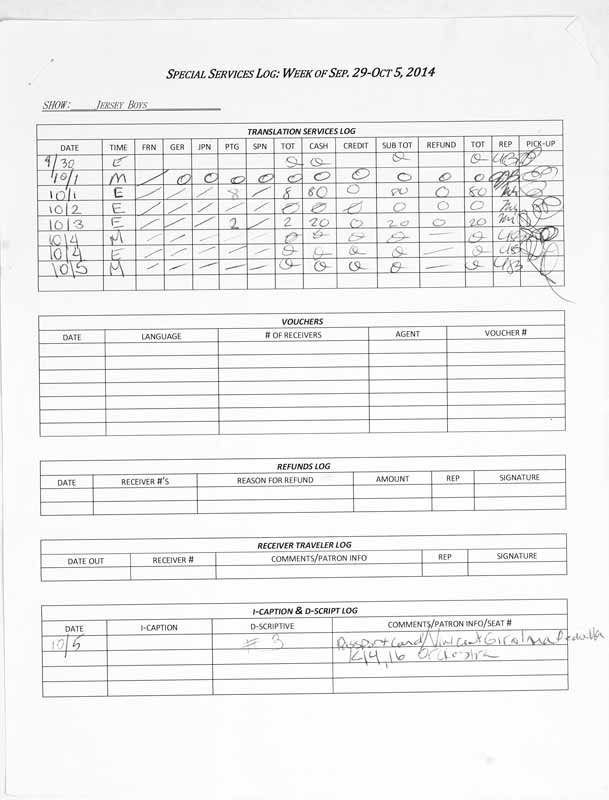 SPECIAL SERVICES LOG: WEEK OF SEP. 29-OCT 5, 2014
SHOW: JERSEY BOYS
TRANSLATION SERVICES LOG
DATE TIME FRN GER JPN PTG SPN TOT CASH CREDIT SUB TOT REFUND TOT REP PICK-UP
9/30 E 0 0 0 0
10/1 M / 0 0 0 0 0 0 0 0 0 0
10/1 E / / / 8 / 8 80 0 80 0 80
10/2 E / / / / / 0 0 0 0 0 0
10/3 E / / / 2 / 2 20 0 20 0 20
10/4 M / / / / / 0 0 0 0 — 0
10/4 E / / / / / 0 0 0 0 — 0
10/5 M / / / / / 0 0 0 0 — 0
VOUCHERS
DATE LANGUAGE # OF RECEIVERS AGENT VOUCHER #
REFUNDS LOG
DATE RECEIVER #'S REASON FOR REFUND AMOUNT REP SIGNATURE
RECEIVER TRAVELER LOG
DATE OUT RECEIVER # COMMENTS/PATRON INFO REP SIGNATURE
I-CAPTION & D-SCRIPT LOG
DATE I-CAPTION D-SCRIPTIVE COMMENTS/PATRON INFO/SEAT #
10/5 # 3 Passport card/Vincent
16 Orchestra